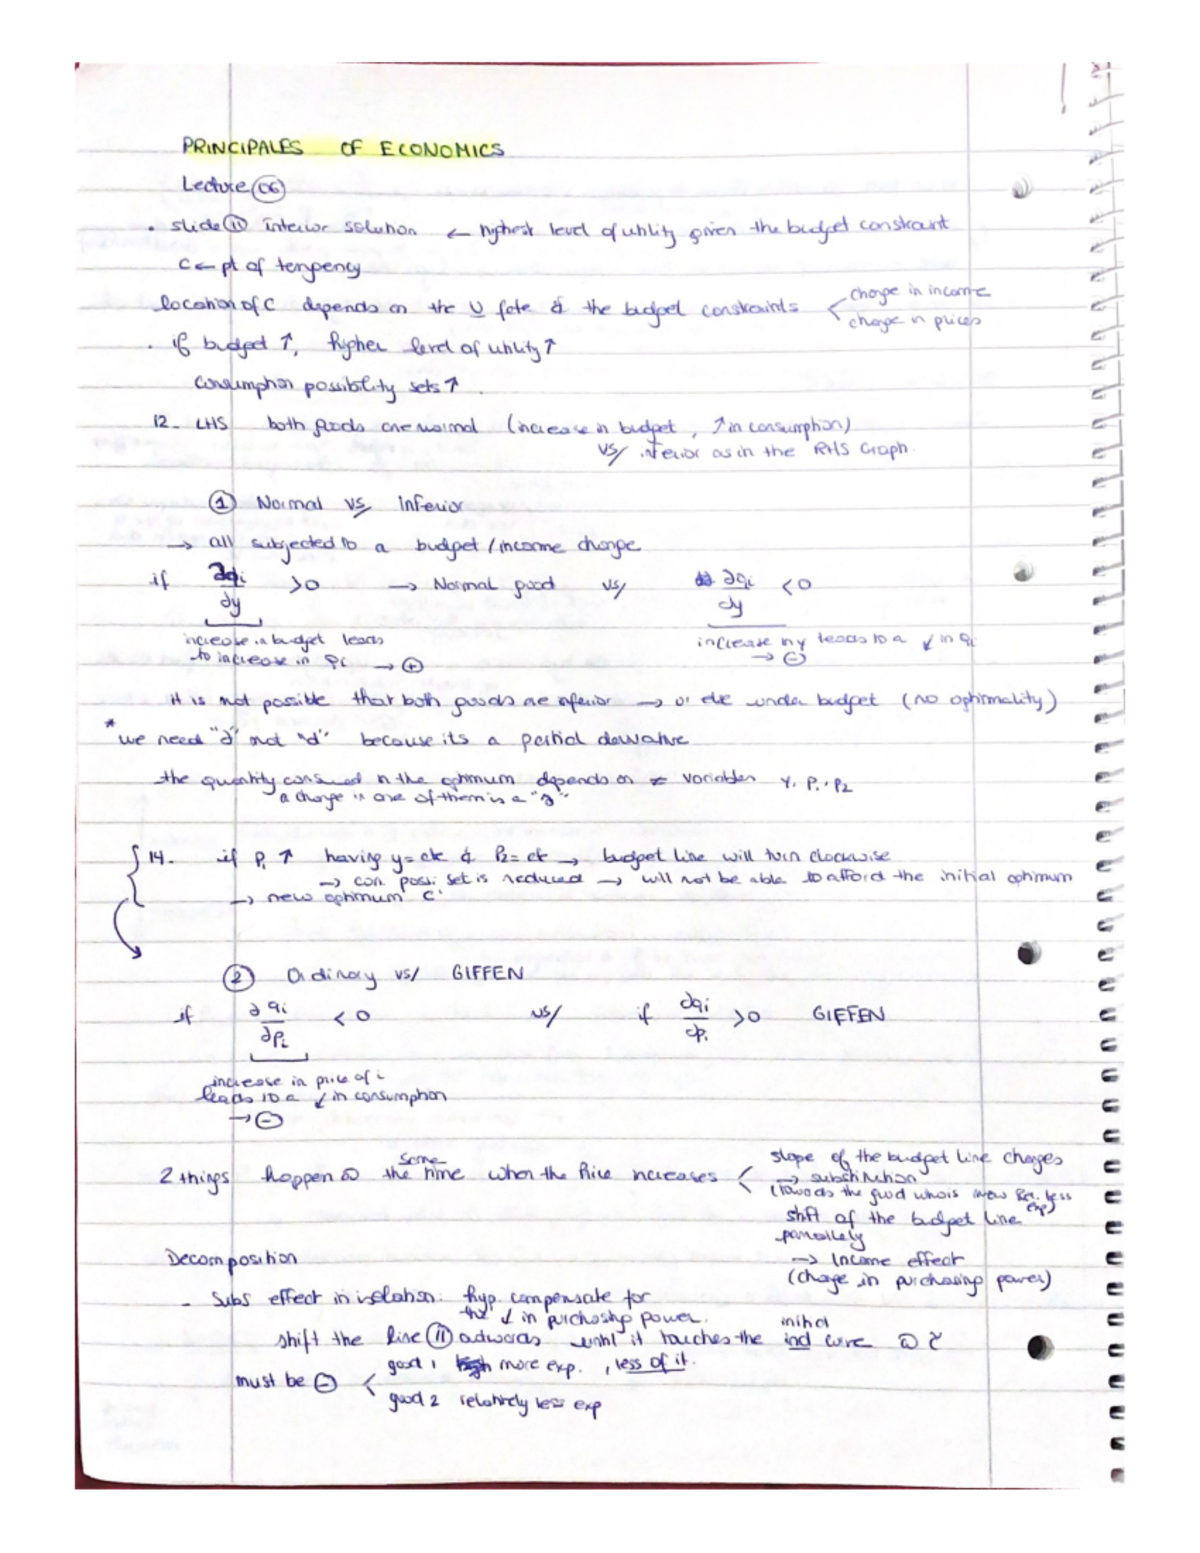 PRINCIPALES OF ECONOMICS
Lecture 06
• slide 11 interior solution ← highest level of utility given the budget constraint
C ← pt of tengency
location of C depends on the U fcte & the budget constraints < change in income
change in prices
• if budget ↑, higher level of utility ↑
Consumption possibility sets ↑
12 - LHS both goods are normal (increase in budget, ↑ in consumption)
vs/ inferior as in the RHS Graph.
① Normal vs/ Inferior
→ all subjected to a budget / income change
if ∂qi/∂y >0 → Normal good vs/ ∂qi/∂y <0
increase in budget leads to increase in qi → ⊕
increase in y leads to a ↓ in qi → ⊖
it is not possible that both goods are inferior → or else under budget (no optimality)
* we need "∂" not "d" because its a partial derivative
the quantity consumed in the optimum depends on ≠ variables y, P1, P2
a change in one of them is a "∂"
14 - if P1 ↑ having y = cte & P2 = cte → budget line will turn clockwise
→ con. possi. set is reduced → will not be able to afford the initial optimum
→ new optimum C'
② Ordinary vs/ GIFFEN
if ∂qi/∂Pi < 0 vs/ if ∂qi/∂Pi >0 GIFFEN
increase in price of i
leads to a ↓ in consumption
→ ⊖
2 things happen @ the same time when the Price increases < slope of the budget line changes
→ substitution
(towards the good which is now Rel. less exp)
shift of the budget line
parallely
→ Income effect
(change in purchasing power)
Decomposition
- Subs effect in isolation: hyp. compensate for
the ↓ in purchasing power.
shift the line (11) outwards until it touches the initial ind curve @ C̃
must be ⊖ < good 1 more exp. , less of it.
good 2 relatively less exp